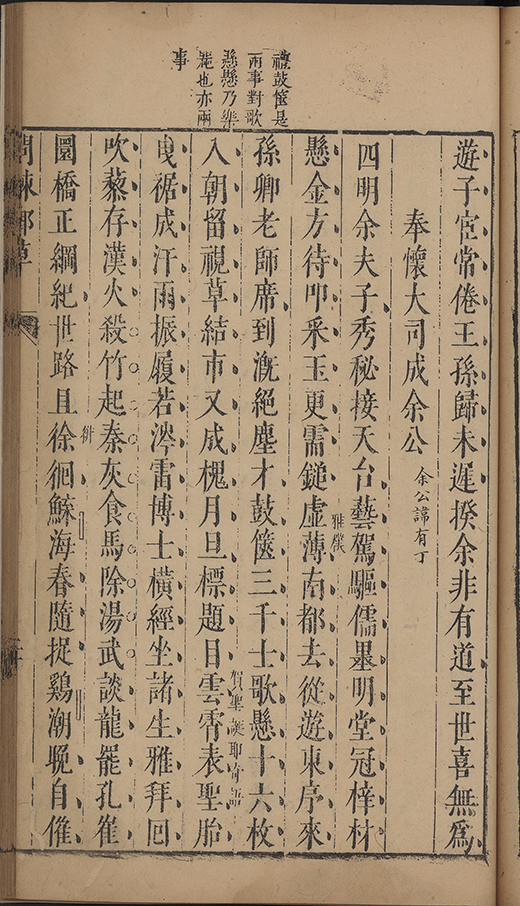 禮鼓篋是
兩事對歌
懸懸乃樂
簴也亦兩
事
遊子宦常倦王孫歸未遲揆余非有道至世喜無爲
奉懷大司成余公 余公諱有丁
四明余夫子秀秘接天台藝駕驅儒墨明堂冠梓材
雅儗
懸金方待叩采玉更需鎚虛薄南都去從遊東序來
孫卿老師席到漑絕塵才鼓篋三千士歌懸十六枚
入朝留視草結市又成槐月旦標題目雲霄表聖胎
賢聖
語
曳裾成汗雨振履若濘雷博士橫經坐諸生雅拜回
吹藜存漢火殺竹起秦灰食馬除湯武談龍罷孔崔
圜橋正綱紀世路且徐徊鯀海春隨捉鷄潮晚自催